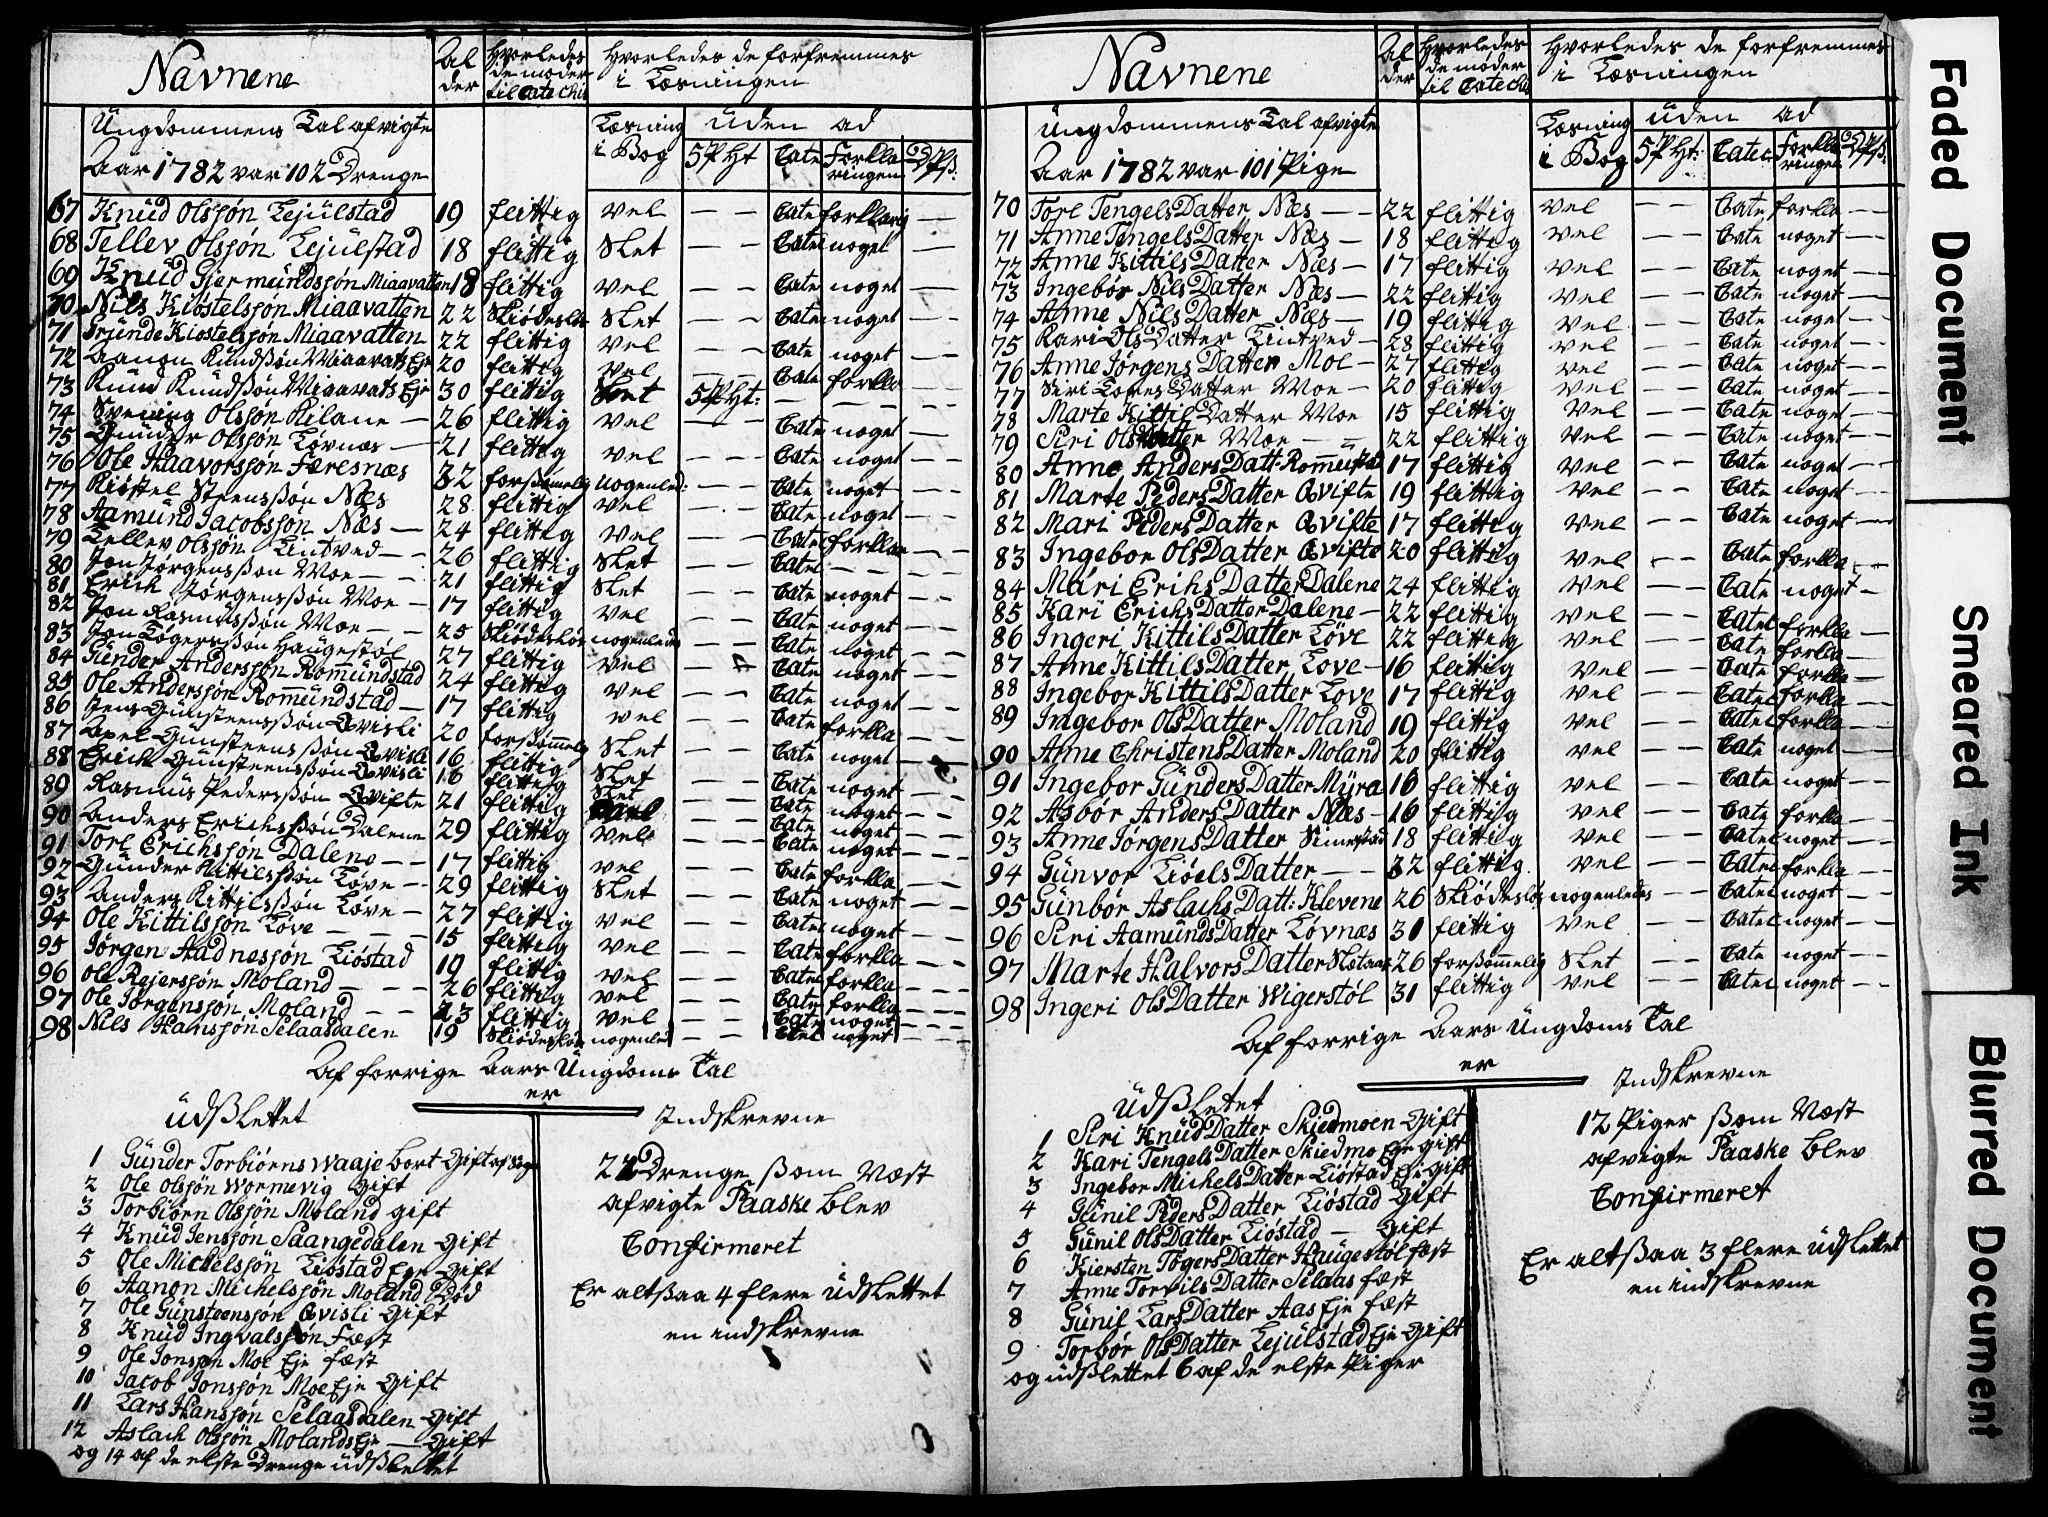 Navnene
Al
der
Hvorledes
de møder
til Catechis
Hvorledes de forfremmes
i Læsningen
Ungdommens Tal afvigte
Aar 1782 var 102 Drenge
Læsning
i Bog
uden ad
5 P Ht
Cate
Forkla
ringen
67 Knud Olssøn Lejulstad 19 flittig vel — — Cate forklarig —
68 Tellev Olssøn Lejulstad 18 flittig Slet — — Cate noget —
69 Knud Gjermundssøn Miaavatten 18 flittig vel — — Cate noget — —
70 Nils Kiøstelssøn Miaavatten 22 Skiødesløs Slet — — Cate noget — —
71 Grunde Kiostelsjøn Miaavatten 22 flittig vel — — Cate noget — —
72 Aanon Knudssøn Miaavats Eje 20 flittig vel — — Cate forkla — —
73 Knud Knudssøn Miaavats Eje 30 flittig Slet 5 P Ht: — — — —
74 Sveinung Olssøn Kilane — 26 flittig vel — — Cate noget — —
75 Gunder Olssøn Løvnæs — 21 flittig vel — — Cate noget — —
76 Ole Haavorssøn Færesnæs 32 forsømmelig nogenled: — — Cate noget — —
77 Kiøstel Steenssøn Næs 28 flittig vel — — Cate noget — —
78 Aamund Jacobssøn Næs — 24 flittig vel — — Cate forklar — —
79 Tellev Olssøn Lintved — — 26 flittig Slet — — Cate — — —
80 Jon Jørgenssøn Moe — — 21 flittig Slet — — Cate noget — —
81 Erich Jørgenssøn Moe — 17 flittig vel — — Cate noget — —
82 Jon Rasmussøn Moe — — 25 Skiødesløs nogenledes — — Cate noget — —
83 Jon Togerssøn Haugestøl 27 flittig vel — Cate noget — —
84 Gunder Anderssøn Rommundstad 24 flittig vel — — Cate noget — —
85 Ole Anderssøn Rommundstad — 17 flittig vel — — Cate forkla — —
86 Jens Gunsteenssøn Qvisli 20 forsømmelig Slet — — Cate noget — —
87 Axel Gunsteenssøn Qvisli 16 flittig Slet — — Cate noget — —
88 Erich Gunsteenssøn Qvisli 16 flittig Slet — — Cate noget — —
89 Rasmus Pederssøn Qvifte 21 flittig vel — — Cate noget — —
90 Anders Erichssøn Dalene 29 flittig vel — — Cate noget — —
91 Torl Erichssøn Dalene — — 17 flittig vel — — Cate forkla — —
92 Gunder Kittilssøn Løve — — 29 flittig Slet — — Cate noget — —
93 Anders Kittilssøn Løve — 27 flittig vel — — Cate noget — —
94 Ole Kittilssøn Løve — — — 15 flittig vel — — Cate forkla — —
95 Jørgen Aadnessøn Liøstad 19 flittig vel — — Cate forkla — —
96 Ole Rejerssøn Moland — — — 26 flittig vel — — Cate forkla — —
97 Ole Jørgenssøn Moland — — 23 flittig vel — — Cate noget — —
98 Nils Hanssøn Selaasdalen 19 Skiødesløs nogenled — — Cate noget — —
Af forrige Aars Ungdoms Tal
er
Udslettet
1 Gunder Torbiørns Waaje bort Gift
2 Ole Olssøn Wormevig Gift
3 Torbiørn Olssøn Moland gift
4 Knud Jenssøn Saangedalen Gift
5 Ole Michelssøn Liøstad Eje Gift
6 Aanon Michelssøn Moland Død
7 Ole Gunsteenssøn Qvisli Gift
8 Knud Ingvalssøn Fæst
9 Ole Jonssøn Moe Eje fæst
10 Jacob Jonssøn Moe Eje Gift
11 Lars Hanssøn Selaasdalen Gift
12 Aslach Olssøn Molands Eje — Gift
og 14 af de elste Drenge udslettet
Indskrevne
22 Drenge som Næst
afvigte Paaske blev
Confirmeret
Er altsaa 4 flere Udslettet
en indskrevne
Navnene
Al
der
Hvorledes
de møder
til Catechis
Hvorledes de forfremmes
i Læsningen
Ungdommens Tal afvigte
Aar 1782 var 101 Pige
Læsning
i Bog
uden ad
5 P Ht:
Cate
Forkla
ringen
70 Torl Tengels Datter Næs — — 22 flittig vel — — Cate forkla — —
71 Anne Tengels Datter Næs — 18 flittig vel — — Cate noget — —
72 Anne Kittils Datter Næs — 17 flittig vel — — Cate noget — —
73 Ingebor Nils Datter Næs — 22 flittig vel — — Cate noget — —
74 Anne Nils Datter Næs — 19 flittig vel — — Cate noget — —
75 Kari Ols Datter Lintved — 28 flittig vel — — Cate noget — —
76 Anne Jørgens Datter Moe — 27 flittig vel — — Cate noget — —
77 Siri Datter Moe — 20 flittig vel — — Cate noget — —
78 Marte Kittil Datter Moe 15 flittig vel — — Cate noget — —
79 Siri Ols Datter Moe — — 22 flittig vel — — Cate noget — —
80 Anne Anders Datt: Rommunstad 17 flittig vel — — Cate noget — —
81 Marte Peders Datter Qvifte 19 flittig vel — — Cate noget — —
82 Mari Peders Datter Qvifte 17 flittig vel — — Cate noget — —
83 Ingebor Ols Datter Qvifte 20 flittig vel — — Cate forkla — —
84 Mari Erichs Datter Dalene 24 flittig vel — — Cate noget —
85 Kari Erichs Datter Dalene — 22 flittig vel — — Cate forkla —
86 Ingeri Kittils Datter Løve 22 flittig vel — — Cate forkla —
87 Anne Kittils Datter Løve — 16 flittig vel — — Cate forkla —
88 Ingebor Kittils Datter Løve 17 flittig vel — — Cate forkla —
89 Ingebor Ols Datter Moland 19 flittig vel — — Cate forkla —
90 Anne Christens Datter Moland 20 flittig vel — — Cate noget — —
91 Ingebor Gunders Datter Myra 16 flittig vel — — Cate noget — —
92 Asbor Anders Datter Næs — 16 flittig vel — — Cate forkla — —
93 Anne Jørgens Datter Simestad 18 flittig vel — — Cate noget — —
94 Gunvor Liøels Datter — — 32 flittig vel — — Cate forkla — —
95 Gunbør Aslachs Datt: Klevene 26 Skiødesløs nogenledes — — Cate noget — —
96 Siri Aamunds Datter Løvnæs 31 flittig vel — — Cate noget — —
97 Marte Halvors Datter 26 forsømmelig Slet — — Cate noget — —
98 Ingeri Ols Datter Wigerstøl 31 flittig vel — — Cate noget — —
Af forrige Aars Ungdoms Tal
er
Udsletet
1 Siri Knud Datter Skiedmoen Gift
2 Kari Tengels Datter Skiedmo Eje gift
3 Ingebor Michels Datter Liøstad Eje Gift
4 Gunil Peders Datter Liøstad Gift
5 Gunil Ols Datter Liøstad — Gift
6 Kiersten Togers Datter Haugestøl fæst
7 Anne Torkils Datter Selaas fæst
8 Gunil Lars Datter Aas Eje fæst
9 Torbør Ols Datter Lejulstad Eje Gift
og udslettet 6 af de elste Piger
Indskrevne
12 Piger som Næst
afvigte Paaske blev
Confirmeret
Er altsaa 3 flere udslettet
en indskrevne
Faded Document
Smeared Ink
Blurred Document